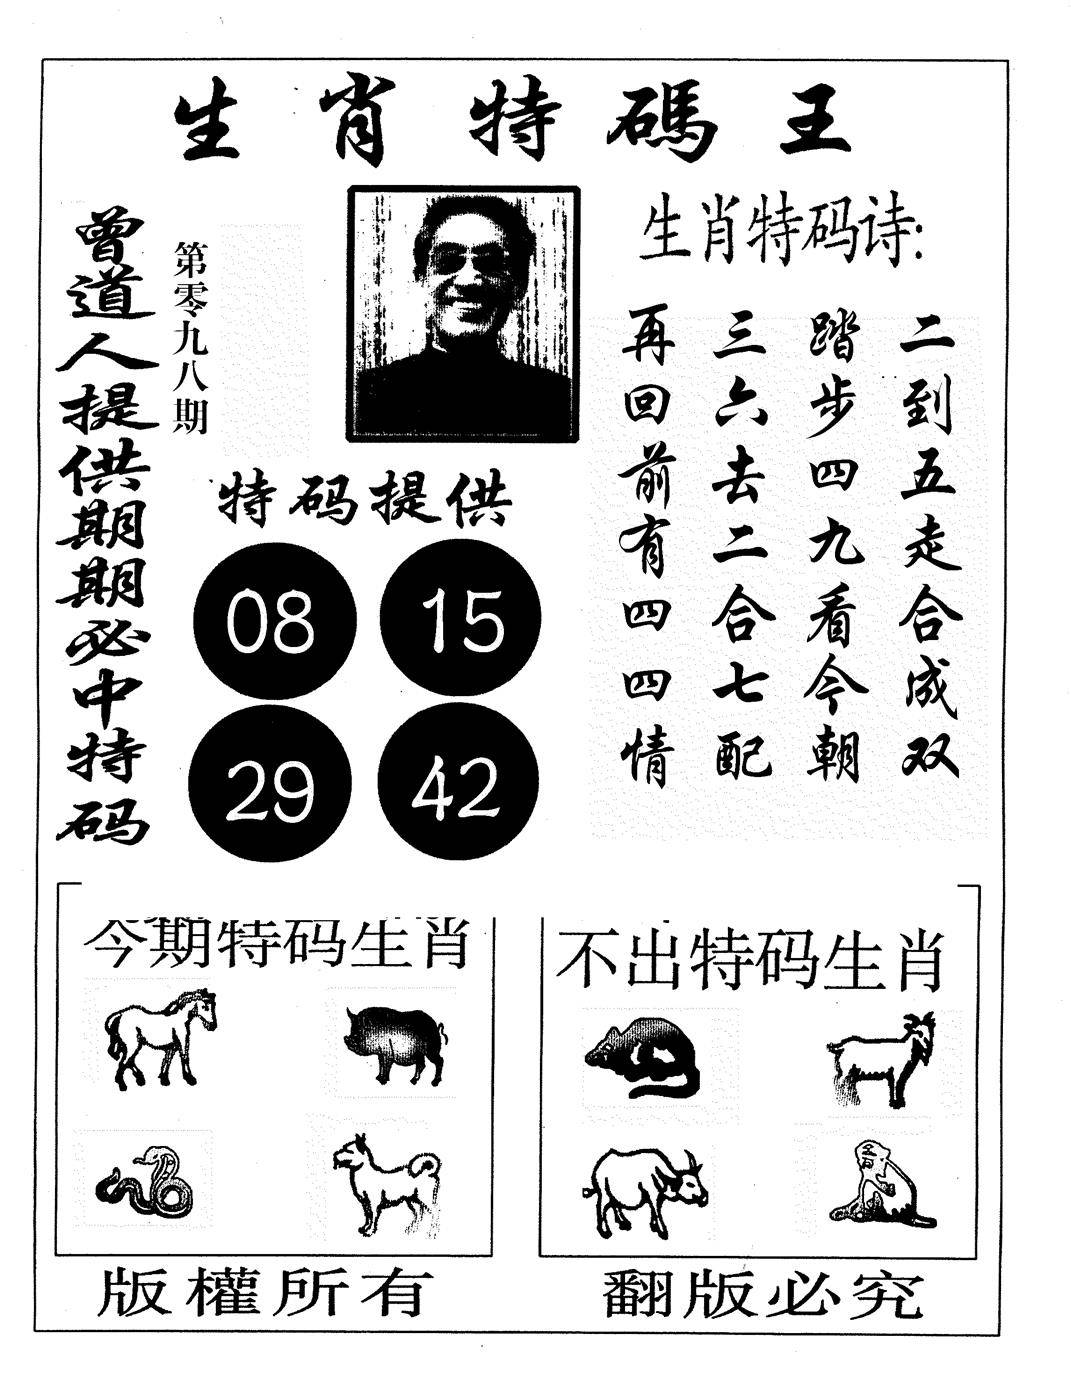 生肖特碼王
曾道人提供期期必中特码
第零九八期
生肖特码诗:
二到五走合成双
踏步四九看今朝
三六去二合七配
再回前有四四情
特码提供
08 15
29 42
今期特码生肖
不出特码生肖
版權所有
翻版必究